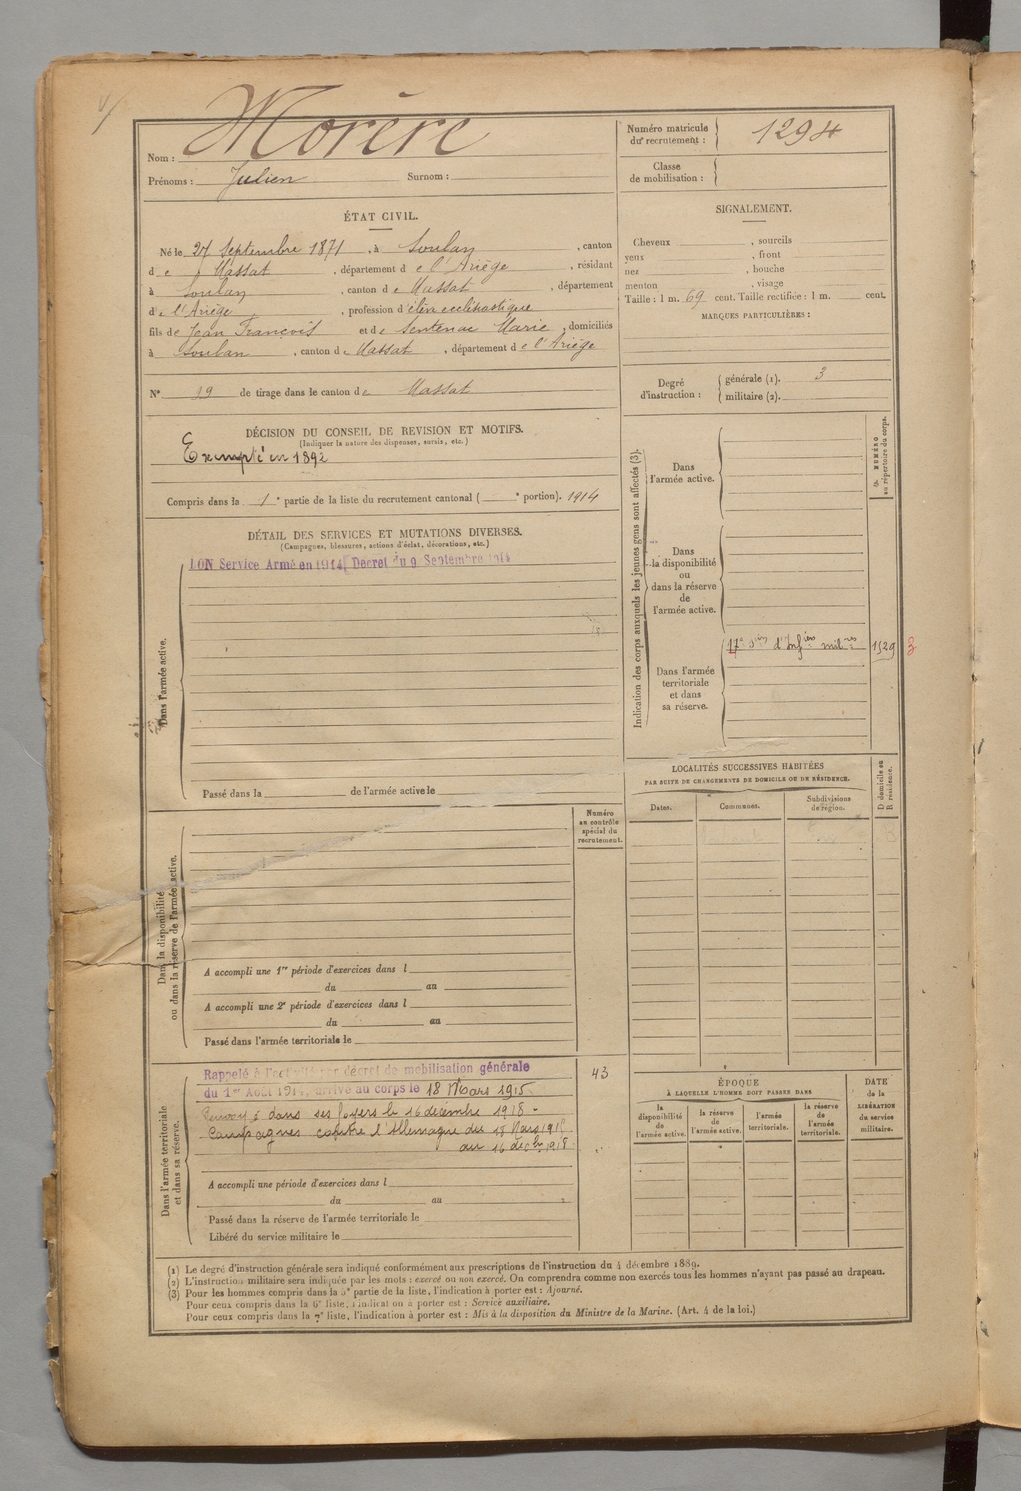 Nom : Morère
Numéro matricule du recrutement : 1294
Prénoms : Julien Surnom :
Classe de mobilisation :
ÉTAT CIVIL.
Né le 27 Septembre 1871, à Soulan, canton
de Massat, département de l'Ariège, résidant
à Soulan, canton de Massat, département
de l'Ariège, profession d'élève ecclésiastique
fils de Jean François et de Sentenac Marie, domiciliés
à Soulan, canton de Massat, département de l'Ariège
N° 19 de tirage dans le canton de Massat
SIGNALEMENT.
Cheveux , sourcils
yeux , front
nez , bouche
menton , visage
Taille : 1 m. 69 cent. Taille rectifiée : 1 m. cent.
MARQUES PARTICULIÈRES :
Degré d'instruction : générale (1). 3
militaire (2).
DÉCISION DU CONSEIL DE REVISION ET MOTIFS.
(Indiquer la nature des dispenses, sursis, etc.)
Exempté en 1892
Compris dans la 1e partie de la liste du recrutement cantonal ( e portion). 1914
DÉTAIL DES SERVICES ET MUTATIONS DIVERSES.
(Campagnes, blessures, actions d'éclat, décorations, etc.)
BON Service Armé en 1914, Décret du 9 Septembre 1914
Dans l'armée active.
Passé dans la de l'armée active le
Indication des corps auxquels les jeunes gens sont affectés (3).
NUMÉRO au répertoire du corps.
Dans l'armée active.
Dans la disponibilité ou dans la réserve de l'armée active.
Dans l'armée territoriale et dans sa réserve.
17e Son d'Infiers milres 1529 3
LOCALITÉS SUCCESSIVES HABITÉES
PAR SUITE DE CHANGEMENTS DE DOMICILE OU DE RÉSIDENCE.
D domicile ou R résidence.
Dates. Communes. Subdivisions de région.
Numéro au contrôle spécial du recrutement.
Dans la disponibilité ou dans la réserve de l'armée active.
A accompli une 1re période d'exercices dans l
du au
A accompli une 2e période d'exercices dans l
du au
Passé dans l'armée territoriale le
Dans l'armée territoriale et dans sa réserve.
Rappelé à l'activité par décret de mobilisation générale
du 1er Août 1914, arrivé au corps le 18 Mars 1915.
43
Renvoyé dans ses foyers le 16 décembre 1918 -
Campagnes contre l'Allemagne du 18 Mars 1915
au 16 décbre 1918
A accompli une période d'exercices dans l
du au
Passé dans la réserve de l'armée territoriale le
Libéré du service militaire le
ÉPOQUE
À LAQUELLE L'HOMME DOIT PASSER DANS
la disponibilité de l'armée active. la réserve de l'armée active. l'armée territoriale. la réserve de l'armée territoriale.
DATE de la LIBÉRATION du service militaire.
(1) Le degré d'instruction générale sera indiqué conformément aux prescriptions de l'instruction du 4 décembre 1889.
(2) L'instruction militaire sera indiquée par les mots : exercé ou non exercé. On comprendra comme non exercés tous les hommes n'ayant pas passé au drapeau.
(3) Pour les hommes compris dans la 5e partie de la liste, l'indication à porter est : Ajourné.
Pour ceux compris dans la 6e liste, l'indication à porter est : Service auxiliaire.
Pour ceux compris dans la 7e liste, l'indication à porter est : Mis à la disposition du Ministre de la Marine. (Art. 4 de la loi.)